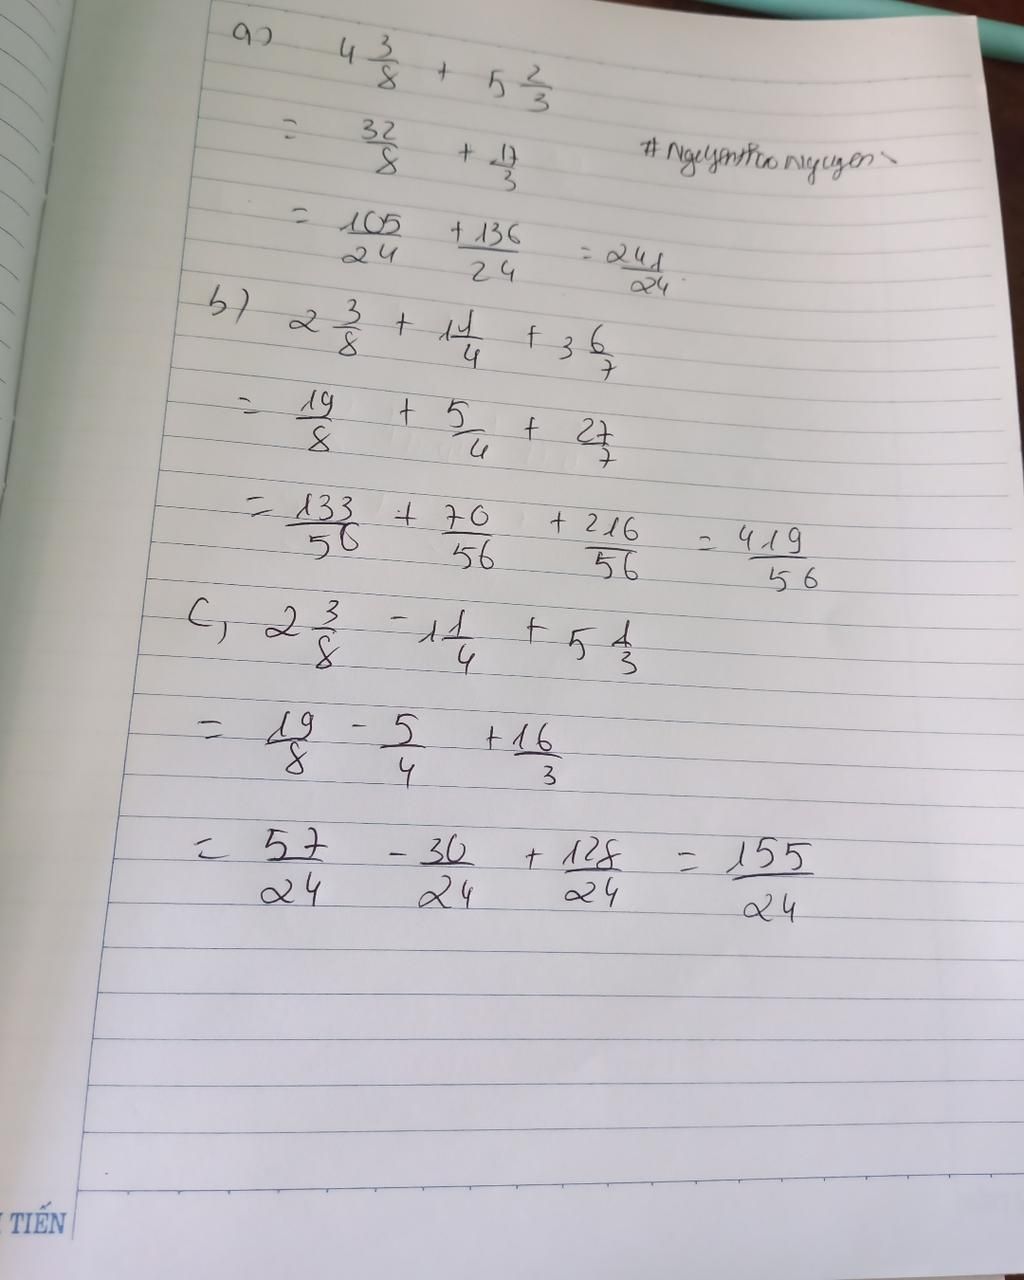 a) 4 3/8 + 5 2/3
= 32/8 + 17/3
= 105/24 + 136/24 = 241/24
b) 2 3/8 + 1 1/4 + 3 6/7
= 19/8 + 5/4 + 27/7
= 133/56 + 70/56 + 216/56 = 419/56
C, 2 3/8 - 1 1/4 + 5 1/3
= 19/8 - 5/4 + 16/3
= 57/24 - 30/24 + 128/24 = 155/24
TIẾN